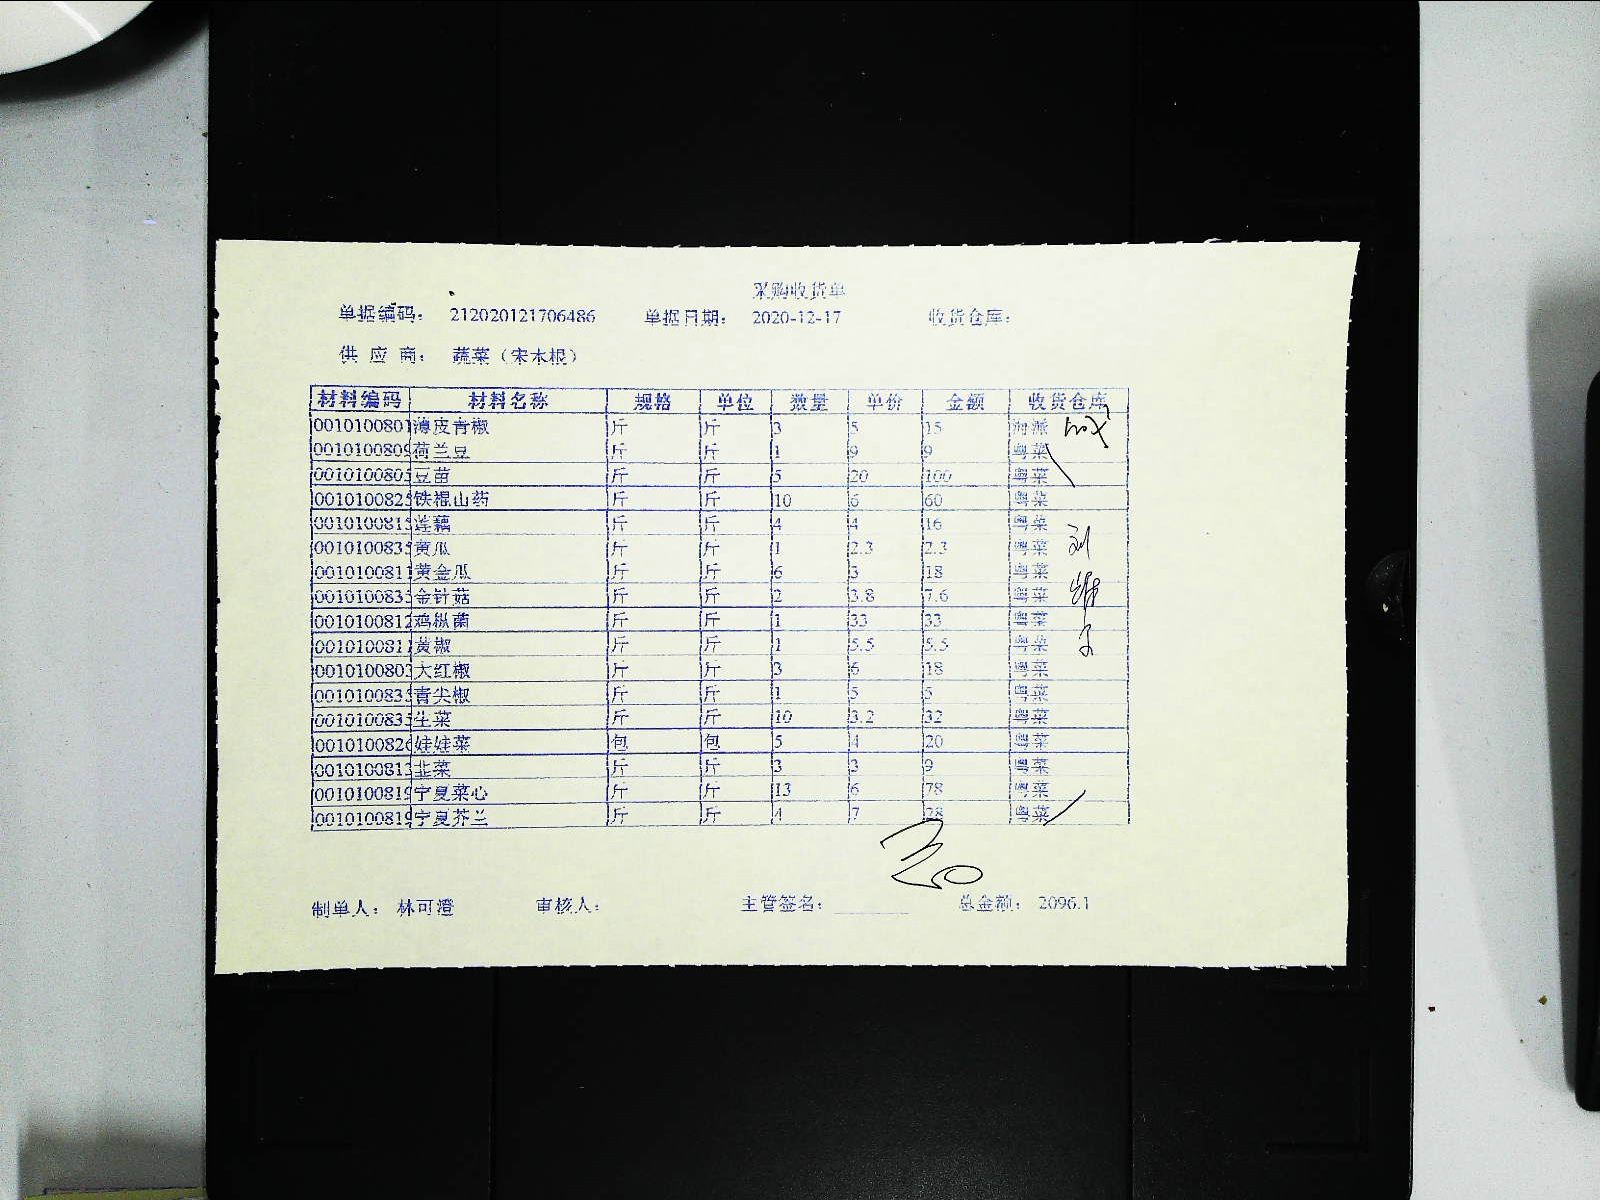 采购收货单
单据编码： 212020121706486 单据日期： 2020-12-17 收货仓库：
供 应 商： 蔬菜（宋木根）
材料编码 材料名称 规格 单位 数量 单价 金额 收货仓库
0010100801 薄皮青椒 斤 斤 3 5 15 海派
0010100809 荷兰豆 斤 斤 1 9 9 粤菜
0010100805 豆苗 斤 斤 5 20 100 粤菜
0010100825 铁棍山药 斤 斤 10 6 60 粤菜
0010100815 莲藕 斤 斤 4 4 16 粤菜
0010100835 黄瓜 斤 斤 1 2.3 2.3 粤菜
0010100811 黄金瓜 斤 斤 6 3 18 粤菜
0010100833 金针菇 斤 斤 2 3.8 7.6 粤菜
0010100812 鸡枞菌 斤 斤 1 33 33 粤菜
0010100811 黄椒 斤 斤 1 5.5 5.5 粤菜
0010100803 大红椒 斤 斤 3 6 18 粤菜
0010100835 青尖椒 斤 斤 1 5 5 粤菜
0010100833 生菜 斤 斤 10 3.2 32 粤菜
0010100826 娃娃菜 包 包 5 4 20 粤菜
0010100813 韭菜 斤 斤 3 3 9 粤菜
0010100819 宁夏菜心 斤 斤 13 6 78 粤菜
0010100819 宁夏芥兰 斤 斤 4 7 28 粤菜
制单人： 林可澄 审核人： 主管签名： 总金额： 2096.1